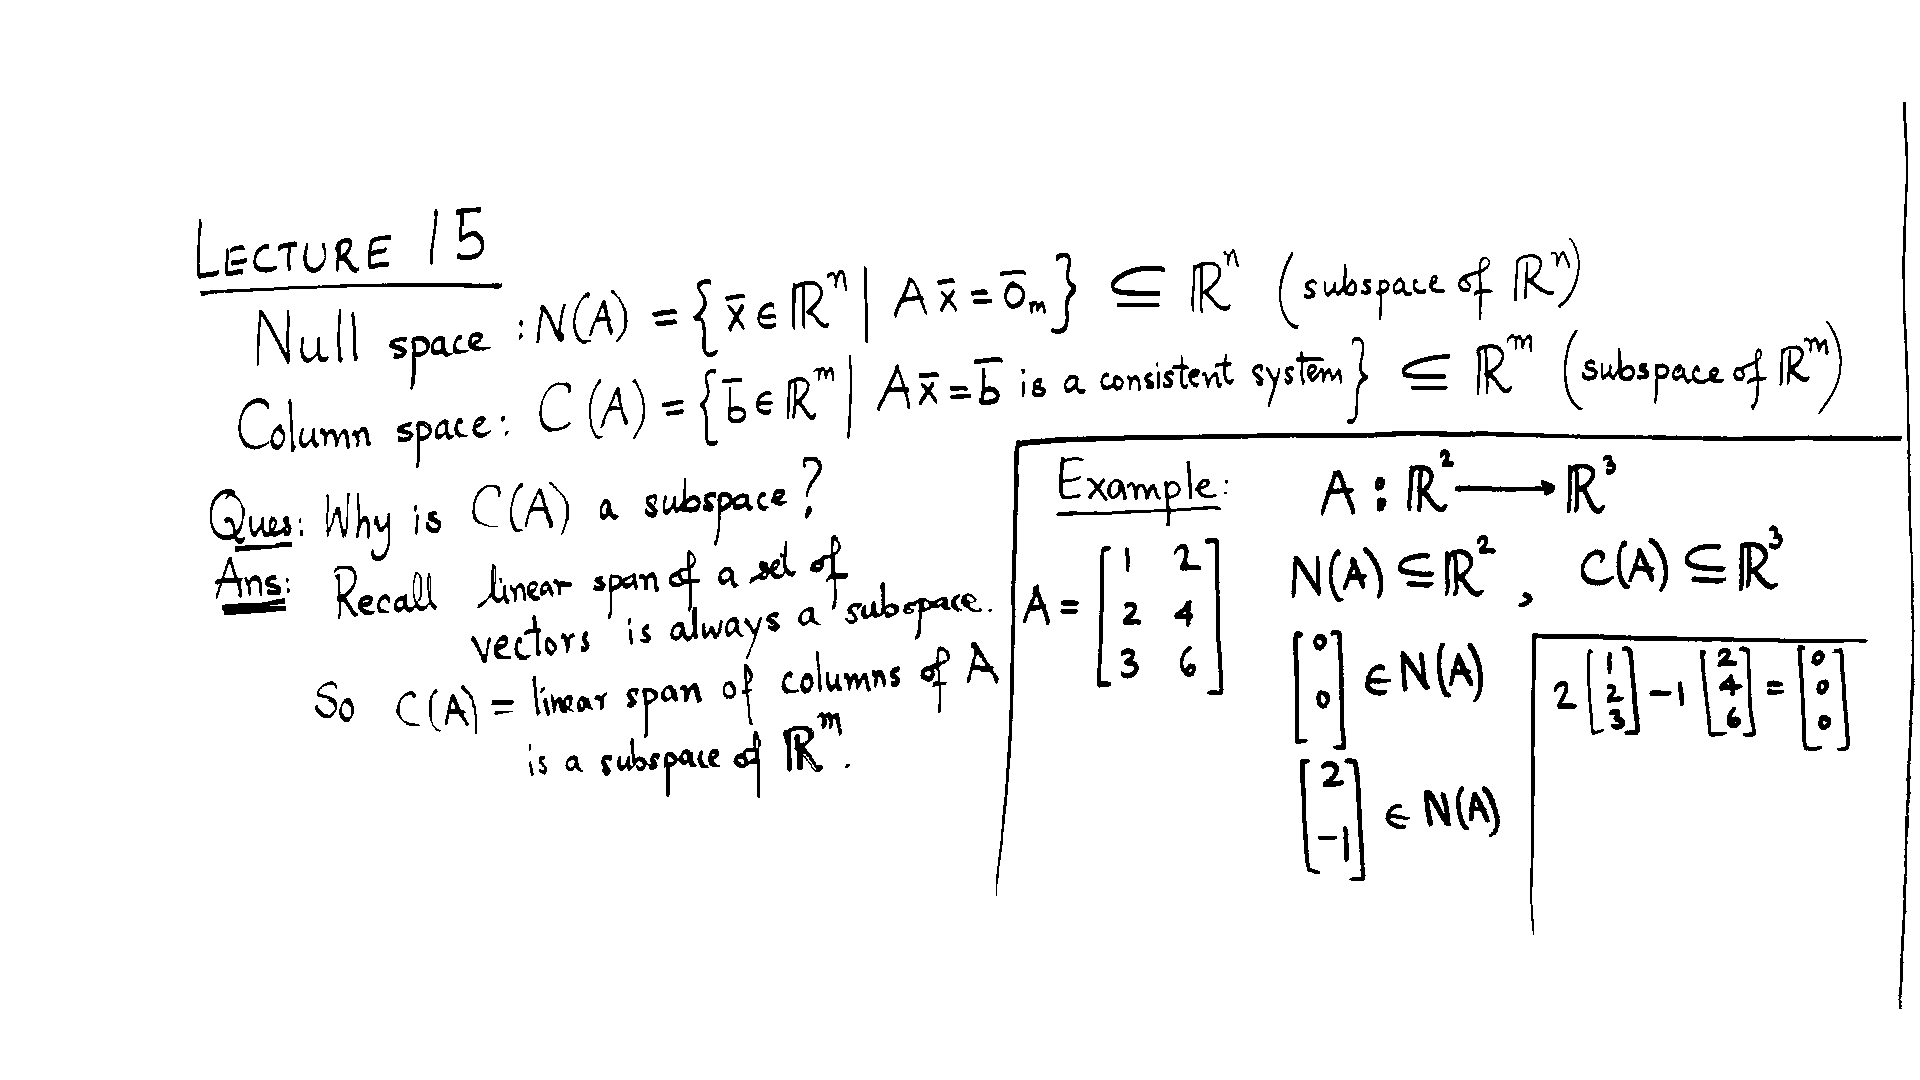 LECTURE 15
Null space : N(A) = { x̄ ∈ ℝⁿ | A x̄ = 0̄ₘ } ⊆ ℝⁿ (subspace of ℝⁿ)
Column space: C(A) = { b̄ ∈ ℝᵐ | A x̄ = b̄ is a consistent system } ⊆ ℝᵐ (subspace of ℝᵐ)
Ques: Why is C(A) a subspace?
Ans: Recall linear span of a set of
vectors is always a subspace.
So C(A) = linear span of columns of A
is a subspace of ℝᵐ.
Example: A : ℝ² ⟶ ℝ³
A = [1 2
2 4
3 6]
N(A) ⊆ ℝ² , C(A) ⊆ ℝ³
[0
0] ∈ N(A)
[2
-1] ∈ N(A)
2 [1 2 3] - 1 [2 4 6] = [0 0 0]